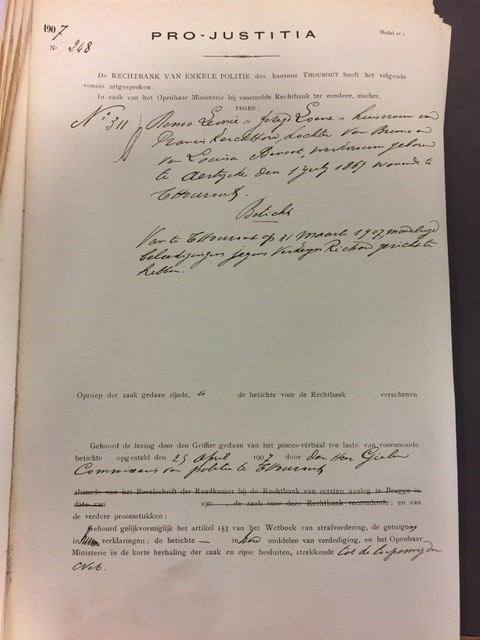 1907
PRO-JUSTITIA
Model nr 1
N° 248
De RECHTBANK VAN ENKELE POLITIE des kantons THOUROUT heeft het volgende
vonnis uitgesproken:
In zaak van het Openbaar Ministerie bij voormelde Rechtbank ter eendere, eischer,
TEGEN:
N° 311
Leonie huisvrouw van
dochter van Bruno en
van Louisa werkvrouw geboren
te Aertrycke den 1 july 1867 wonende te
Thourout
Beticht
Van te Thourout op 31 maart 1907, mondelinge
beleedigingen jegens Richard gericht te
hebben.
Oproep der zaak gedaan zijnde, is de betichte voor de Rechtbank verschenen
Gehoord de lezing door den Griffier gedaan van het proces-verbaal ten laste van voornoemde
betichte opgesteld den 25 april 1907 door den Heer
Commissaris van politie te Thourout
alsmede van het Bevelschrift der Raadkamer bij de Rechtbank van eersten aanleg te Brugge in
date van 190 , de zaak voor deze Rechtbank verzendende; en van
de verdere processtukken;
Gehoord gelijkvormiglijk het artikel 153 van het Wetboek van strafvordering, de getuigen
in hunne verklaringen; de betichte — in haar middelen van verdediging, en het Openbaar
Ministerie in de korte herhaling der zaak en zijne besluiten, strekkende tot de toepassing der
Wet.